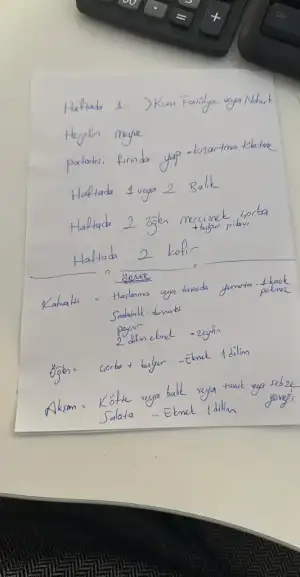 Haftada 1 > Kuru Fasulye veya Nohut
Hergün meyve
patates fırında yap - kızartma
Haftada 1 veya 2 Balık
Haftada 2 öğün mercimek çorba
+ bulgur pilavı
Haftada 2 kefir
Kahvaltı = Haşlanmış veya tavada yumurta - 1 kaşık
pekmez
Salatalık - domates
peynir
2 dilim ekmek - zeytin
Öğlen = çorba + bulgur - Ekmek 1 dilim
Akşam = Köfte veya balık veya tavuk veya sebze
yemeği
Salata - Ekmek 1 dilim